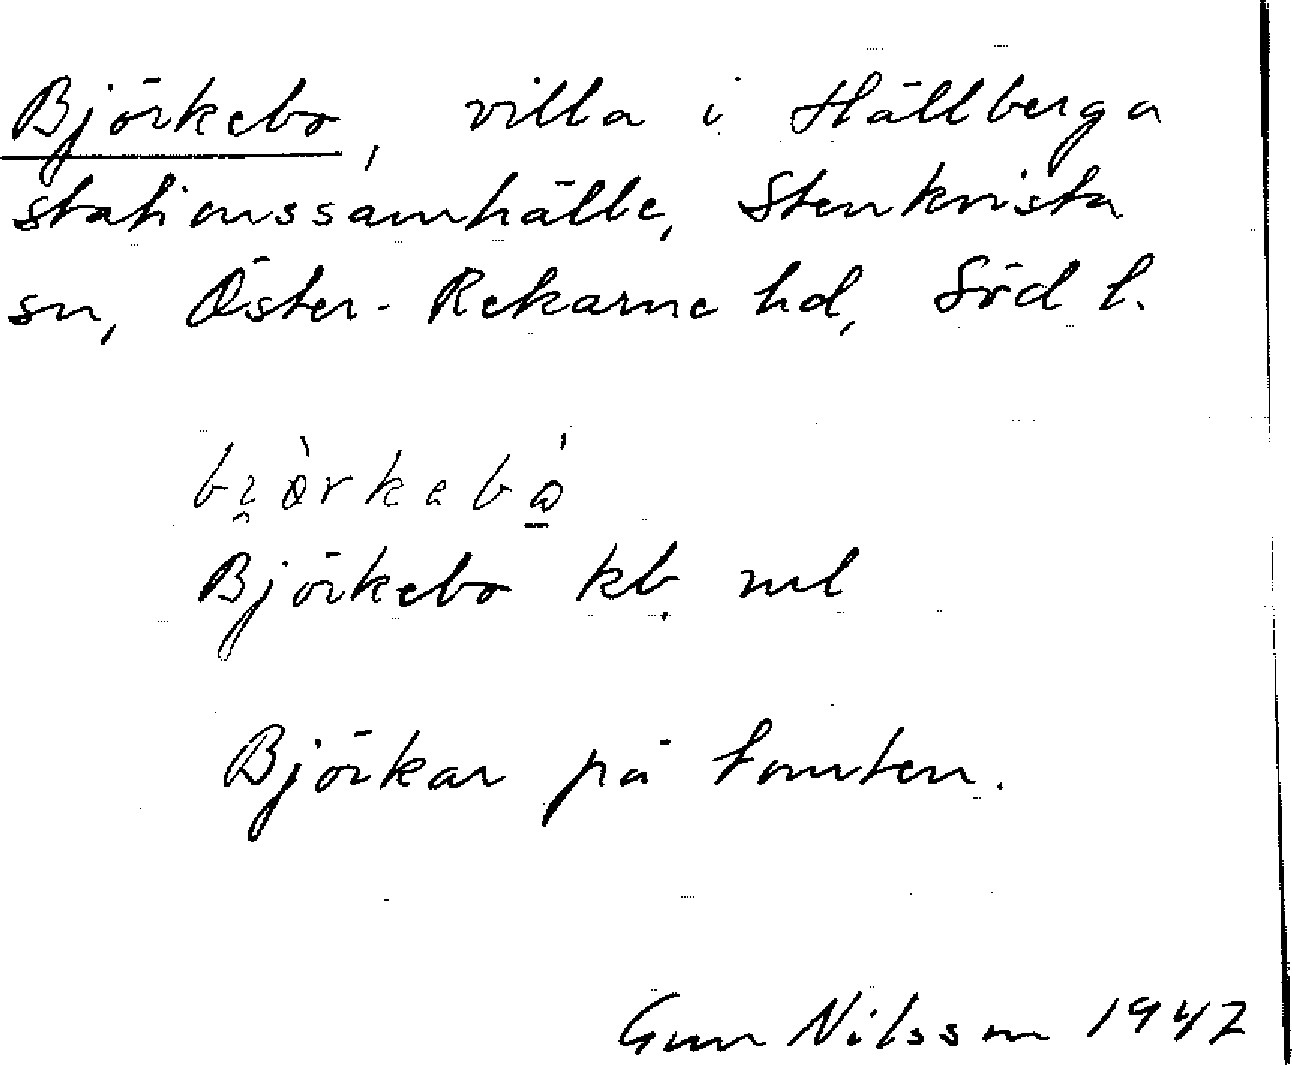 Björkebo, villa i Hällberga
stationssamhälle, Stenkvista
sn, Öster-Rekarne hd, Söd l.
Björkebo kb. ml
Björkar på tomten.
Gun Nilsson 1947